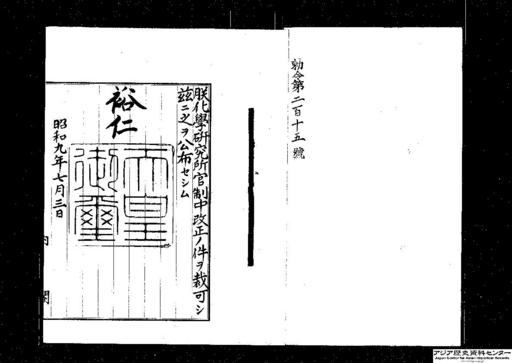 勅令第二百十五號
朕化學研究所官制中改正ノ件ヲ裁可シ
茲ニ之ヲ公布セシム
裕仁
天皇御璽
昭和九年七月三日
内閣
アジア歴史資料センター
Japan Center for Asian Historical Records